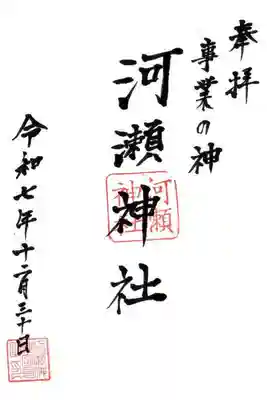 奉拝
事業の神
河瀬神社
河瀬
神社
令和七年十二月三十日